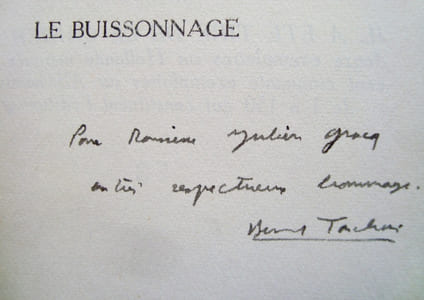 LE BUISSONNAGE
Pour Monsieur Julien Gracq
en très respectueux hommage.